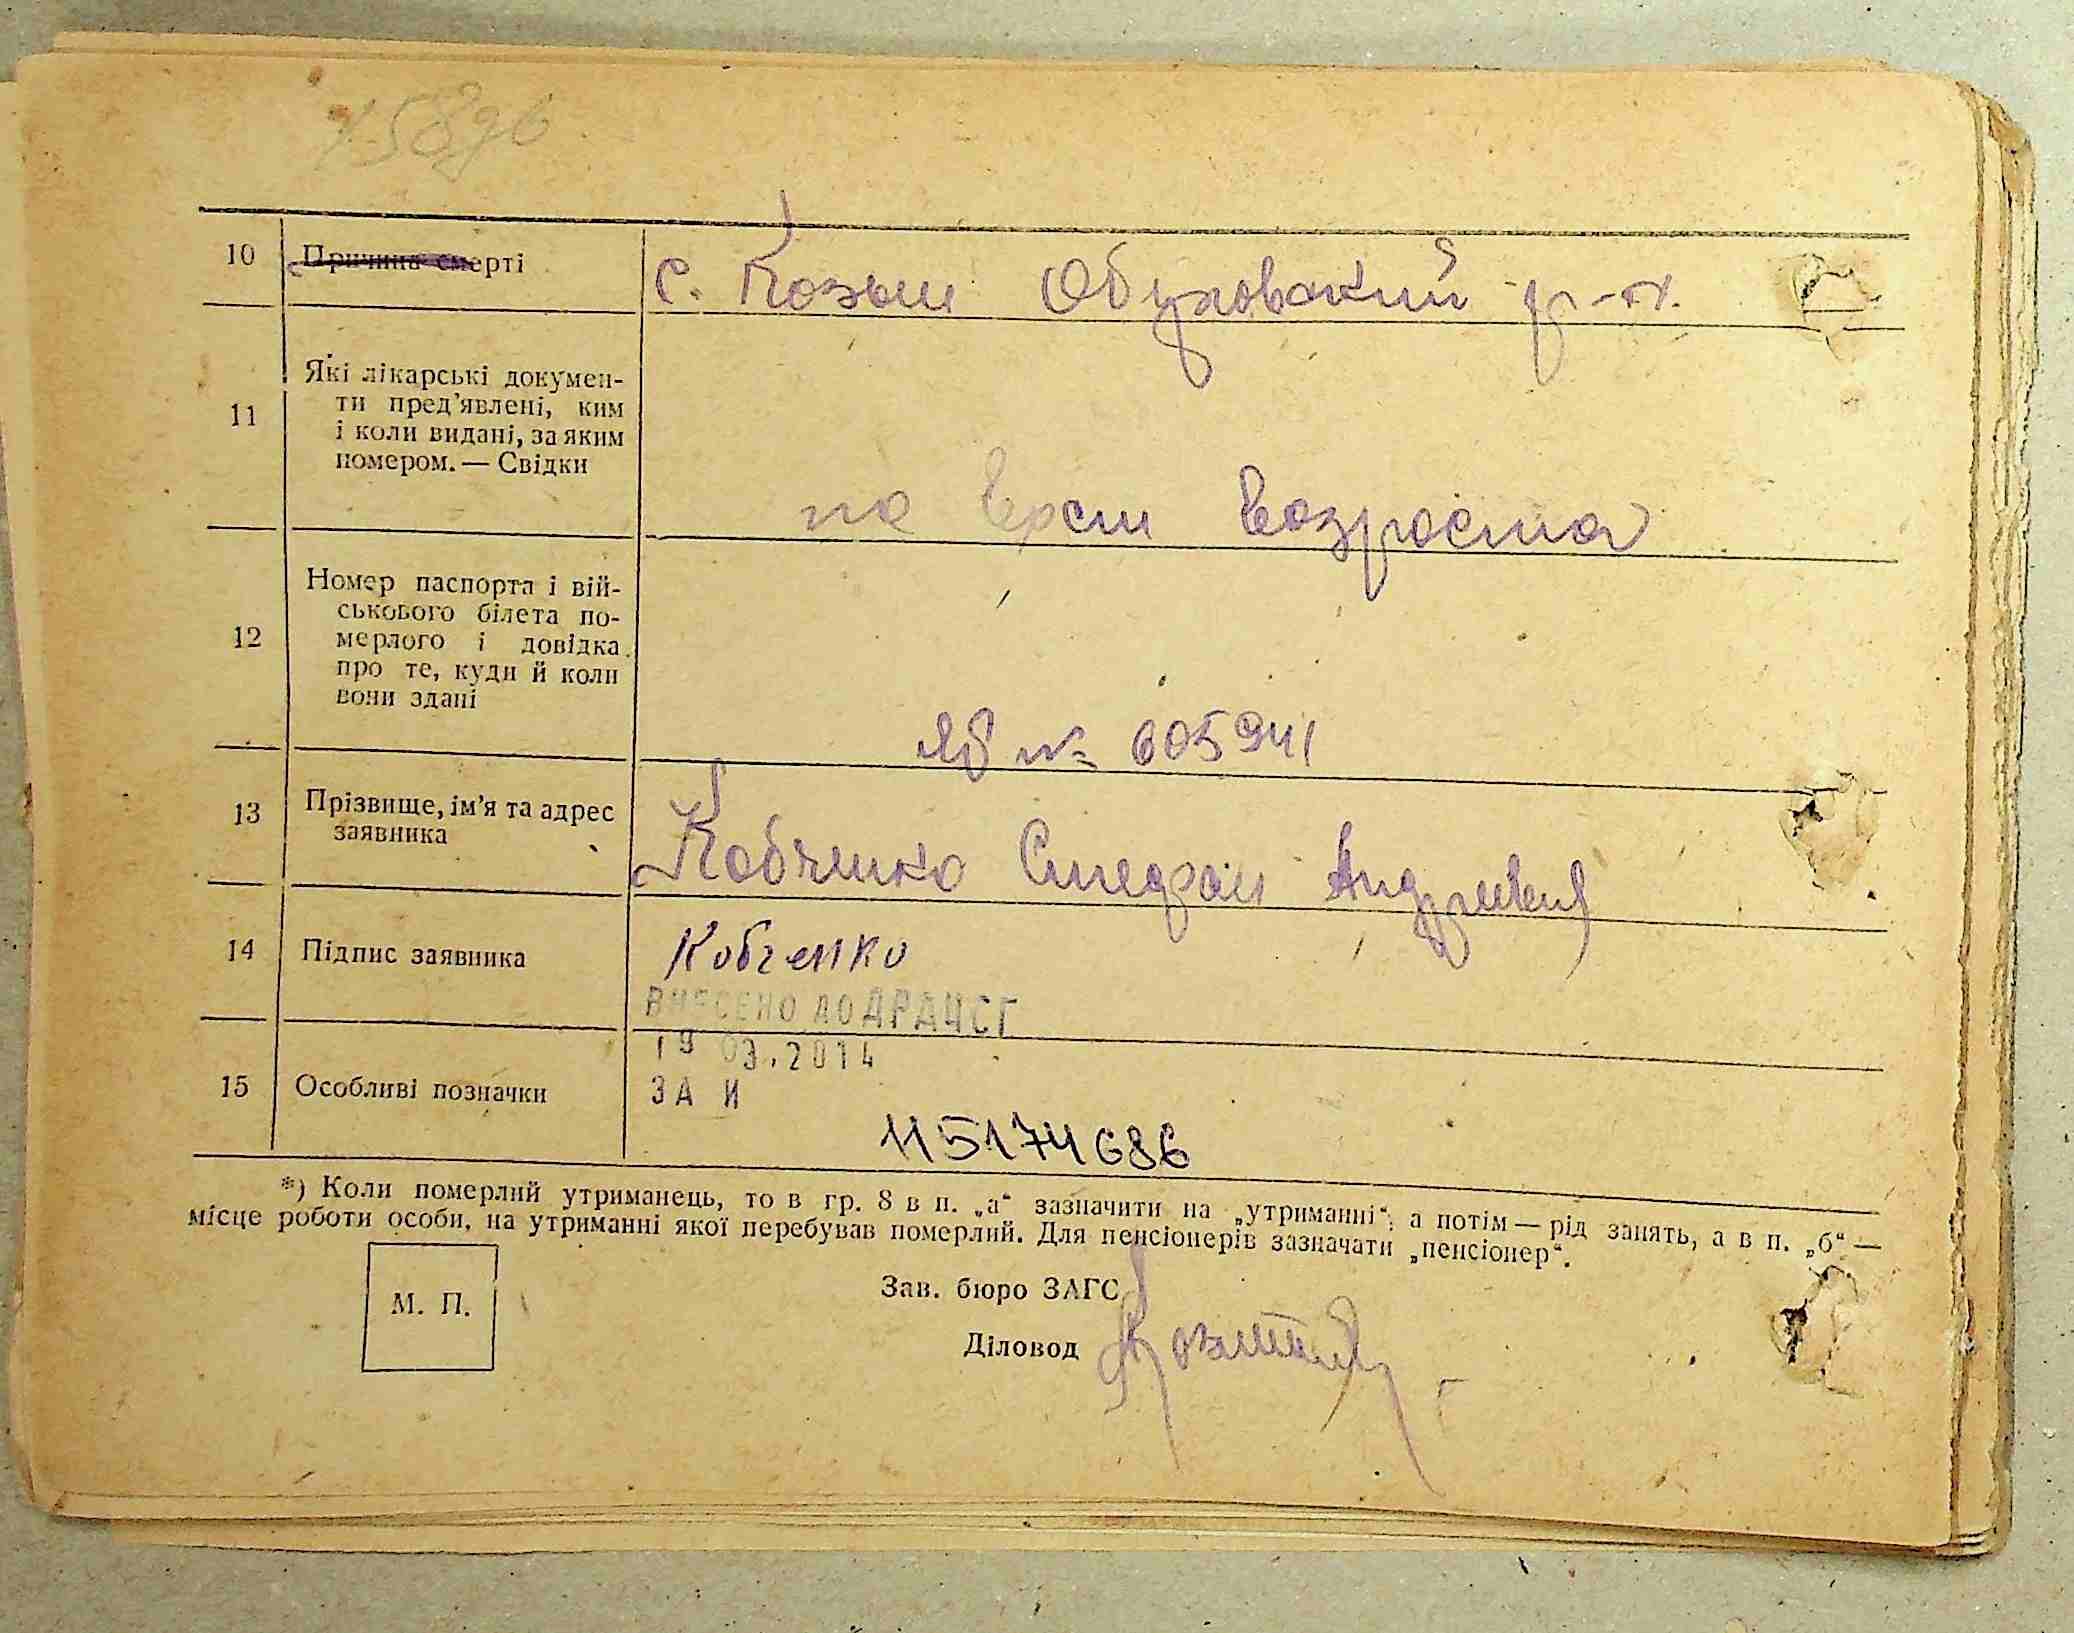 10 Причина смерті с. Козын Обуховский р-н.
11 Які лікарські докумен-
ти пред'явлені, ким
і коли видані, за яким
номером. — Свідки
по возраста
12 Номер паспорта і вій-
ськового білета по-
мерлого і довідка
про те, куди й коли
вони здані
№ 605941
13 Прізвище, ім'я та адрес
заявника
Кобченко Стефан Андреевич
14 Підпис заявника Кобченко
ВНЕСЕНО ДО ДРАЦСГ
19 03.2014
15 Особливі позначки ЗА И
115174686
*) Коли померлий утриманець, то в гр. 8 в п. „а“ зазначити на „утриманні“, а потім — рід занять, а в п. „б“ —
місце роботи особи, на утриманні якої перебував померлий. Для пенсіонерів зазначати „пенсіонер“.
М. П.
Зав. бюро ЗАГС
Діловод